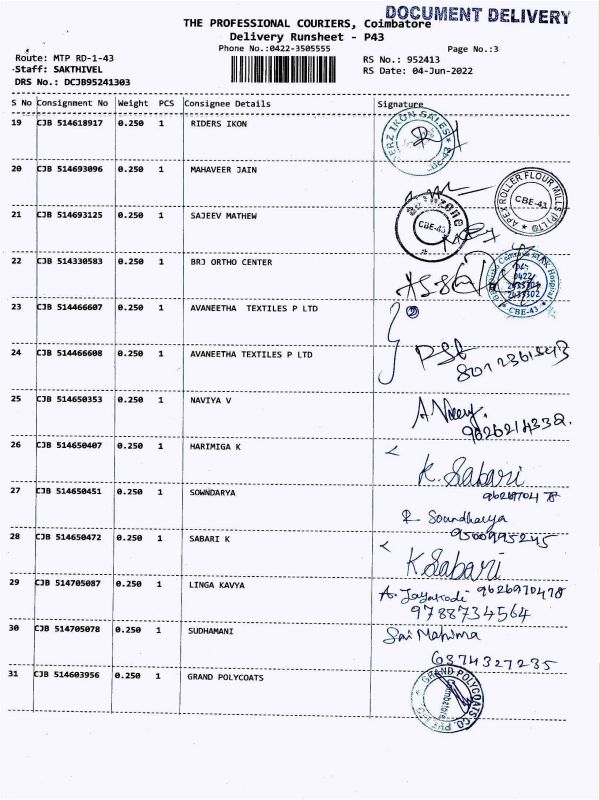 DOCUMENT DELIVERY
THE PROFESSIONAL COURIERS, Coimbatore
Delivery Runsheet - P43
Phone No.:0422-3505555
Page No.:3
Route: MTP RD-1-43
RS No.: 952413
Staff: SAKTHIVEL
RS Date: 04-Jun-2022
DRS No.: DCJB95241303
S No Consignment No Weight PCS Consignee Details Signature
19 CJB 514618917 0.250 1 RIDERS IKON
IKON SALES
20 CJB 514693096 0.250 1 MAHAVEER JAIN
APEX ROLLER FLOUR MILLS (P) LTD
CBE-43
21 CJB 514693125 0.250 1 SAJEEV MATHEW
CBE-43
22 CJB 514330583 0.250 1 BRJ ORTHO CENTER
0422
CBE-43
23 CJB 514466607 0.250 1 AVANEETHA TEXTILES P LTD
2
24 CJB 514466608 0.250 1 AVANEETHA TEXTILES P LTD
25 CJB 514650353 0.250 1 NAVIYA V
26 CJB 514650407 0.250 1 HARIMIGA K
K. Sabari
9626970478
27 CJB 514650451 0.250 1 SOWNDARYA
R. Soundharya
9500995245
28 CJB 514650472 0.250 1 SABARI K
K Sabari
9626970478
29 CJB 514705087 0.250 1 LINGA KAVYA
A. Jayakodi
9788734564
30 CJB 514705078 0.250 1 SUDHAMANI
Sai Mahima
6374327235
31 CJB 514603956 0.250 1 GRAND POLYCOATS
GRAND POLYCOATS CO. PVT